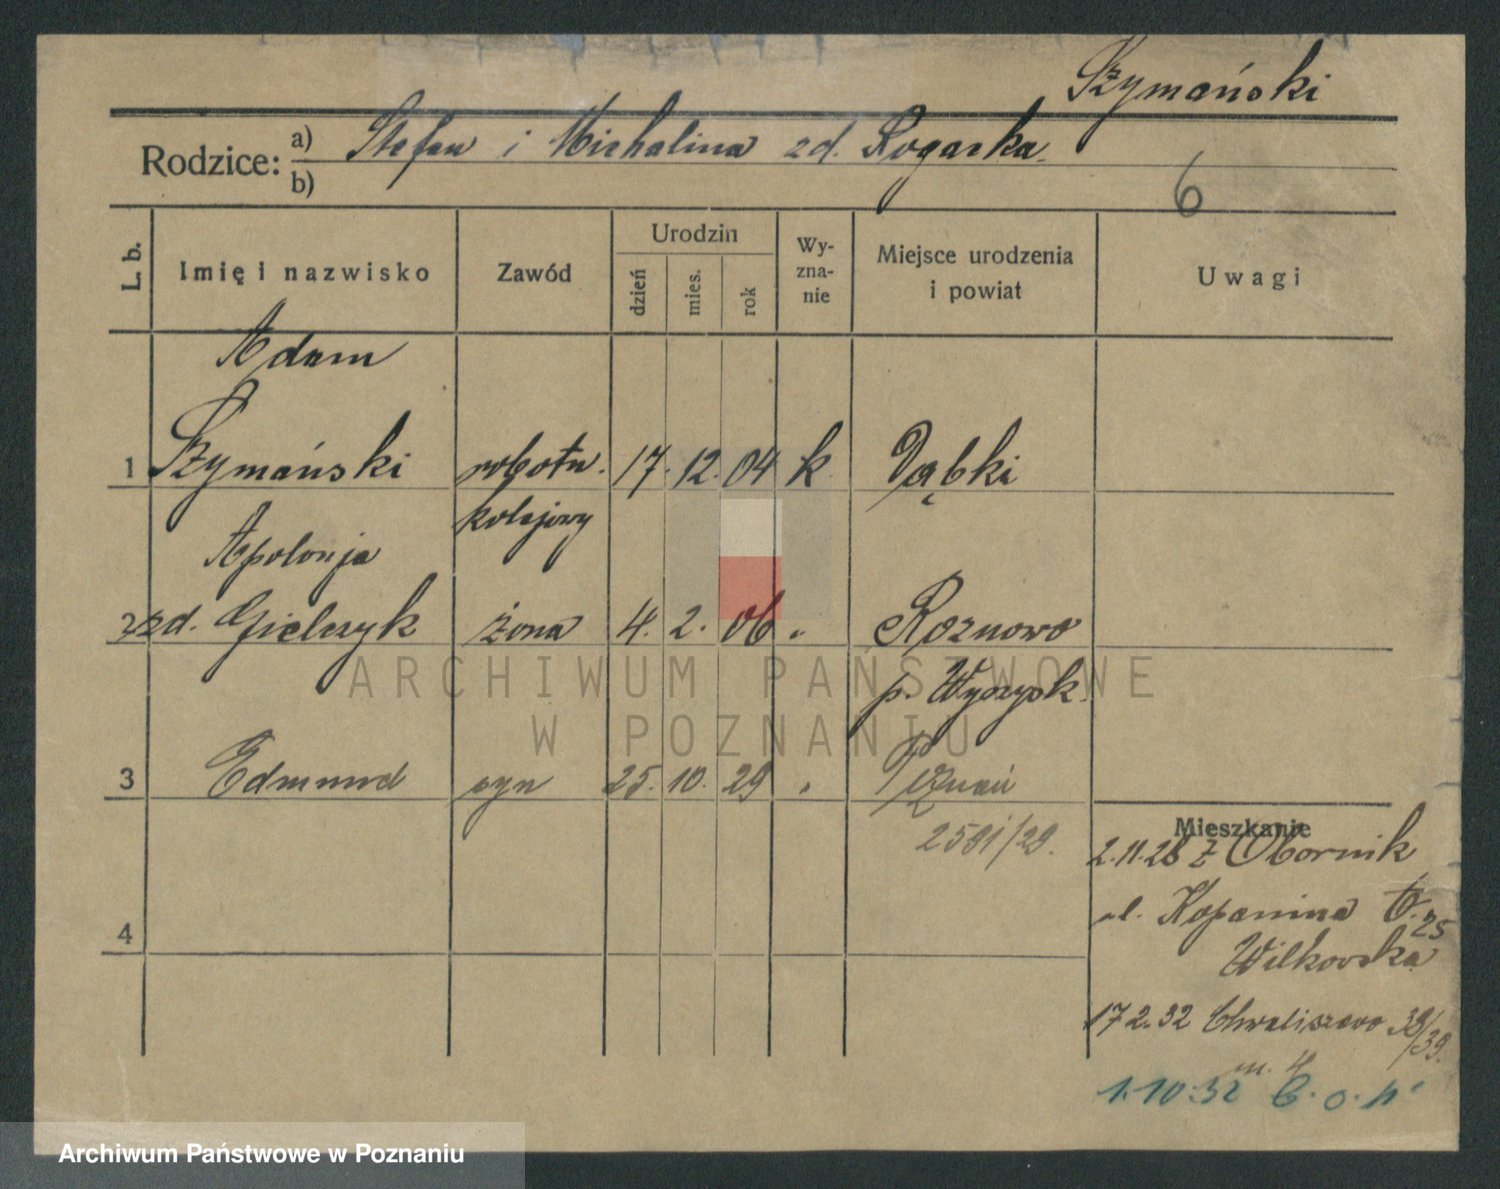 Szymański
Rodzice: a) Stefan i Michalina zd. Rogacka
b)
6
L. b.
Imię i nazwisko
Zawód
Urodzin
dzień
mies.
rok
Wy-
zna-
nie
Miejsce urodzenia
i powiat
Uwagi
Adam
1 Szymański robotn. 17. 12. 04 k Dąbki
kolejowy
Apolonja
2 zd. Gielczyk żona 4. 2. 06 „ Roznowo
p. Wyrzysk.
3 Edmund syn 25. 10. 29 „ Poznań
2591/29.
4
Mieszkanie
2.11.28 z Obornik
ul. Kopanina 25
Wilkowska
17 2.32 Chwaliszewo 38/39.
m. 4
1.10.32
ARCHIWUM PAŃSTWOWE
W POZNANIU
Archiwum Państwowe w Poznaniu